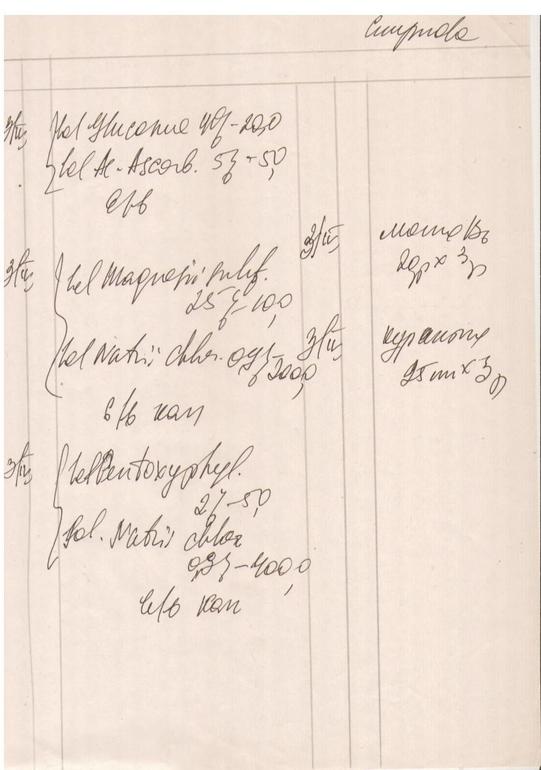 Смирнова
3/III, Sol Glucosae 40% - 20,0
Sol Ac. Ascorb. 5% - 5,0
в/в
3/III, Sol Magnesii sulf.
25% - 10,0
Sol Natrii chlor. 0,9% - 200,0
в/в кап
3/III, Sol Pentoxyphyl.
2% - 5,0
Sol. Natrii chlor
0,9% - 400,0
в/в кап
3/III,
x 3р
3/III, курантил
25 mг x 3р